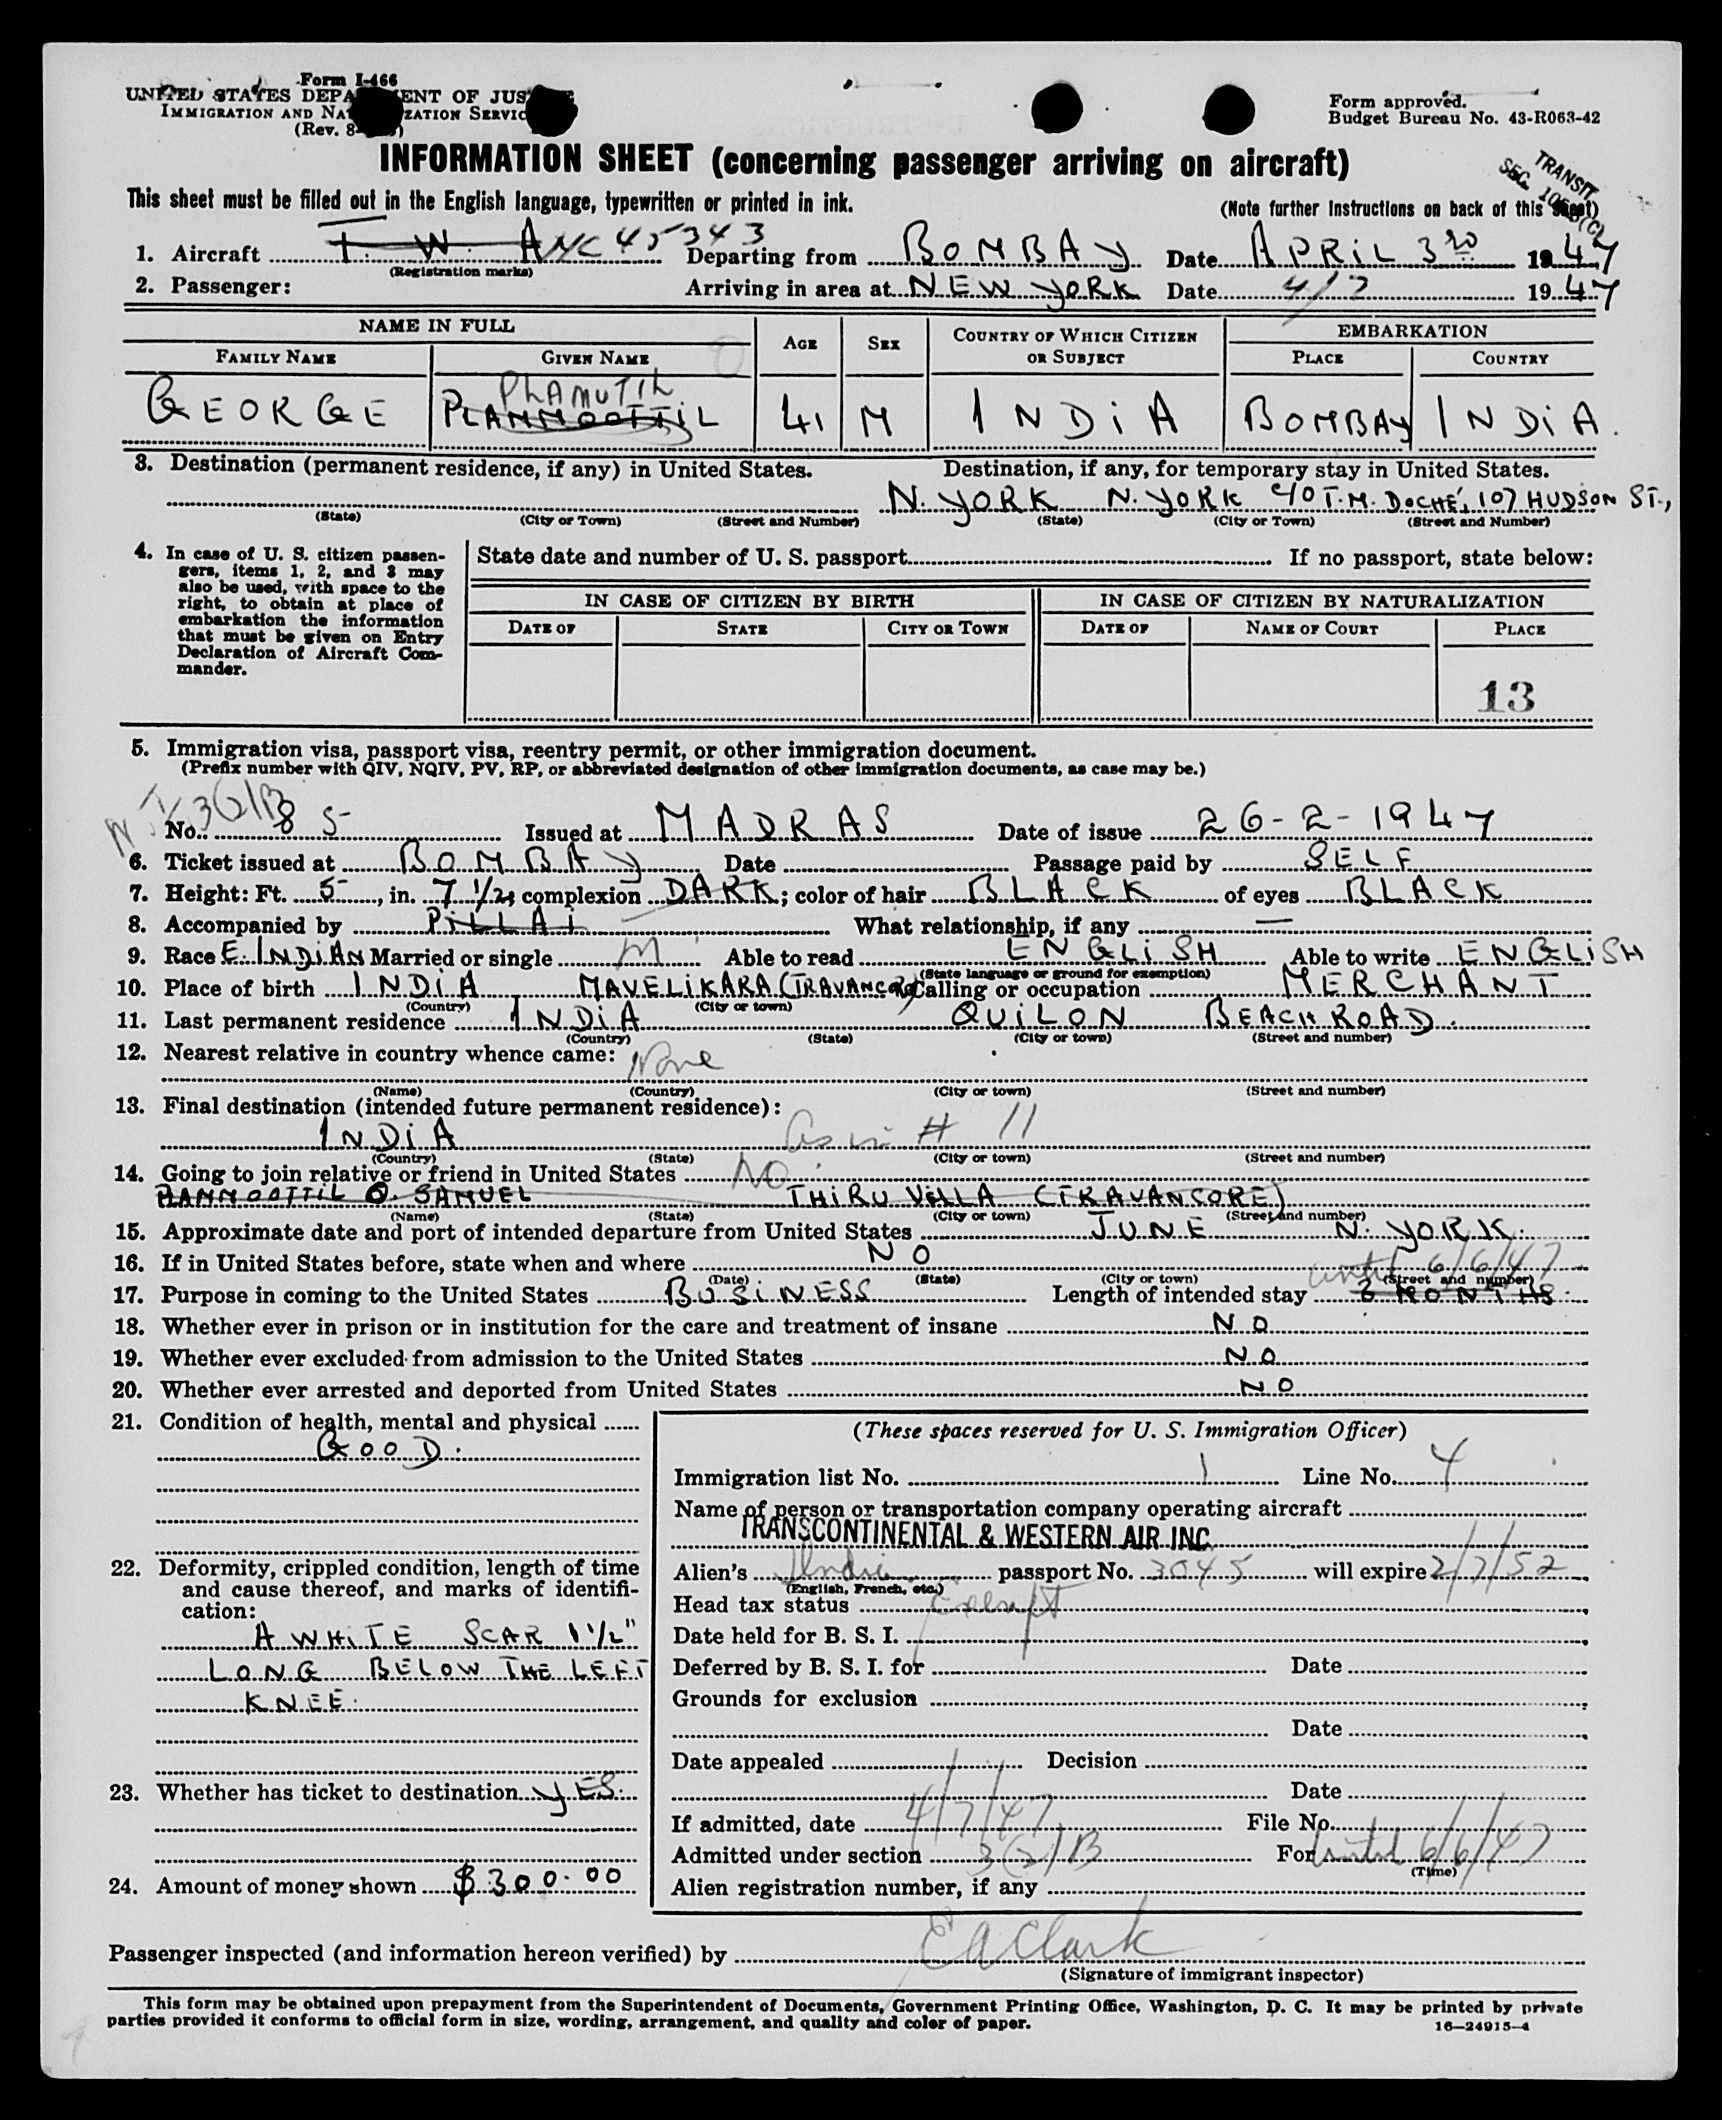 Form I-466
UNITED STATES DEPA ENT OF JUS
IMMIGRATION AND NA ZATION SERVIC
(Rev. 8- )
Form approved.
Budget Bureau No. 43-R063-42
INFORMATION SHEET (concerning passenger arriving on aircraft)
TRANSIT
SEC.
This sheet must be filled out in the English language, typewritten or printed in ink.
(Note further instructions on back of this sheet)
1. Aircraft T. W. A NC 45343 Departing from BOMBAY Date APRIL 3RD 1947
(Registration marks)
2. Passenger: Arriving in area at NEW YORK Date 4/7 1947
NAME IN FULL AGE SEX COUNTRY OF WHICH CITIZEN OR SUBJECT EMBARKATION
FAMILY NAME GIVEN NAME PLACE COUNTRY
PLAMUTIL
GEORGE PLAMMOOTTIL 41 M INDIA BOMBAY INDIA.
3. Destination (permanent residence, if any) in United States. Destination, if any, for temporary stay in United States.
N. YORK N. YORK C/O T.M. DOCHÉ, 107 HUDSON ST.,
(State) (City or Town) (Street and Number) (State) (City or Town) (Street and Number)
4. In case of U. S. citizen passen-
gers, items 1, 2, and 3 may
also be used, with space to the
right, to obtain at place of
embarkation the information
that must be given on Entry
Declaration of Aircraft Com-
mander.
State date and number of U. S. passport If no passport, state below:
IN CASE OF CITIZEN BY BIRTH IN CASE OF CITIZEN BY NATURALIZATION
DATE OF STATE CITY OR TOWN DATE OF NAME OF COURT PLACE
13
5. Immigration visa, passport visa, reentry permit, or other immigration document.
(Prefix number with QIV, NQIV, PV, RP, or abbreviated designation of other immigration documents, as case may be.)
3(2)B
No. 85 Issued at MADRAS Date of issue 26-2-1947
6. Ticket issued at BOMBAY Date Passage paid by SELF
7. Height: Ft. 5, in. 7 1/2; complexion DARK; color of hair BLACK of eyes BLACK
8. Accompanied by PILLAI What relationship, if any —
9. Race E. INDIAN Married or single M Able to read ENGLISH Able to write ENGLISH
(State language or ground for exemption)
10. Place of birth INDIA MAVELIKARA (TRAVANCORE) Calling or occupation MERCHANT
(Country) (City or town)
11. Last permanent residence INDIA QUILON BEACH ROAD.
(Country) (State) (City or town) (Street and number)
12. Nearest relative in country whence came: None
(Name) (Country) (City or town) (Street and number)
13. Final destination (intended future permanent residence):
INDIA as in # 11
(Country) (State) (City or town) (Street and number)
14. Going to join relative or friend in United States NO.
PLAMMOOTTIL O. SAMUEL THIRUVELLA (TRAVANCORE)
(Name) (State) (City or town) (Street and number)
15. Approximate date and port of intended departure from United States JUNE N. YORK.
16. If in United States before, state when and where NO
until 6/6/47
(Date) (State) (City or town) (Street and number)
17. Purpose in coming to the United States BUSINESS Length of intended stay 2 MONTHS.
18. Whether ever in prison or in institution for the care and treatment of insane NO
19. Whether ever excluded from admission to the United States NO
20. Whether ever arrested and deported from United States NO
21. Condition of health, mental and physical
GOOD.
22. Deformity, crippled condition, length of time
and cause thereof, and marks of identifi-
cation:
A WHITE SCAR 1 1/2"
LONG BELOW THE LEFT
KNEE.
23. Whether has ticket to destination YES.
24. Amount of money shown $300.00
(These spaces reserved for U. S. Immigration Officer)
Immigration list No. 1 Line No. 4
Name of person or transportation company operating aircraft
TRANSCONTINENTAL & WESTERN AIR INC.
Alien's India passport No. 3045 will expire 2/7/52
(English, French, etc.)
Head tax status Exempt
Date held for B. S. I.
Deferred by B. S. I. for Date
Grounds for exclusion
Date
Date appealed Decision
Date
If admitted, date 4/7/47 File No.
Admitted under section 3(2)B For until 6/6/47
(Time)
Alien registration number, if any
Passenger inspected (and information hereon verified) by E A Clark
(Signature of immigrant inspector)
This form may be obtained upon prepayment from the Superintendent of Documents, Government Printing Office, Washington, D. C. It may be printed by private
parties provided it conforms to official form in size, wording, arrangement, and quality and color of paper.
16—24915-4